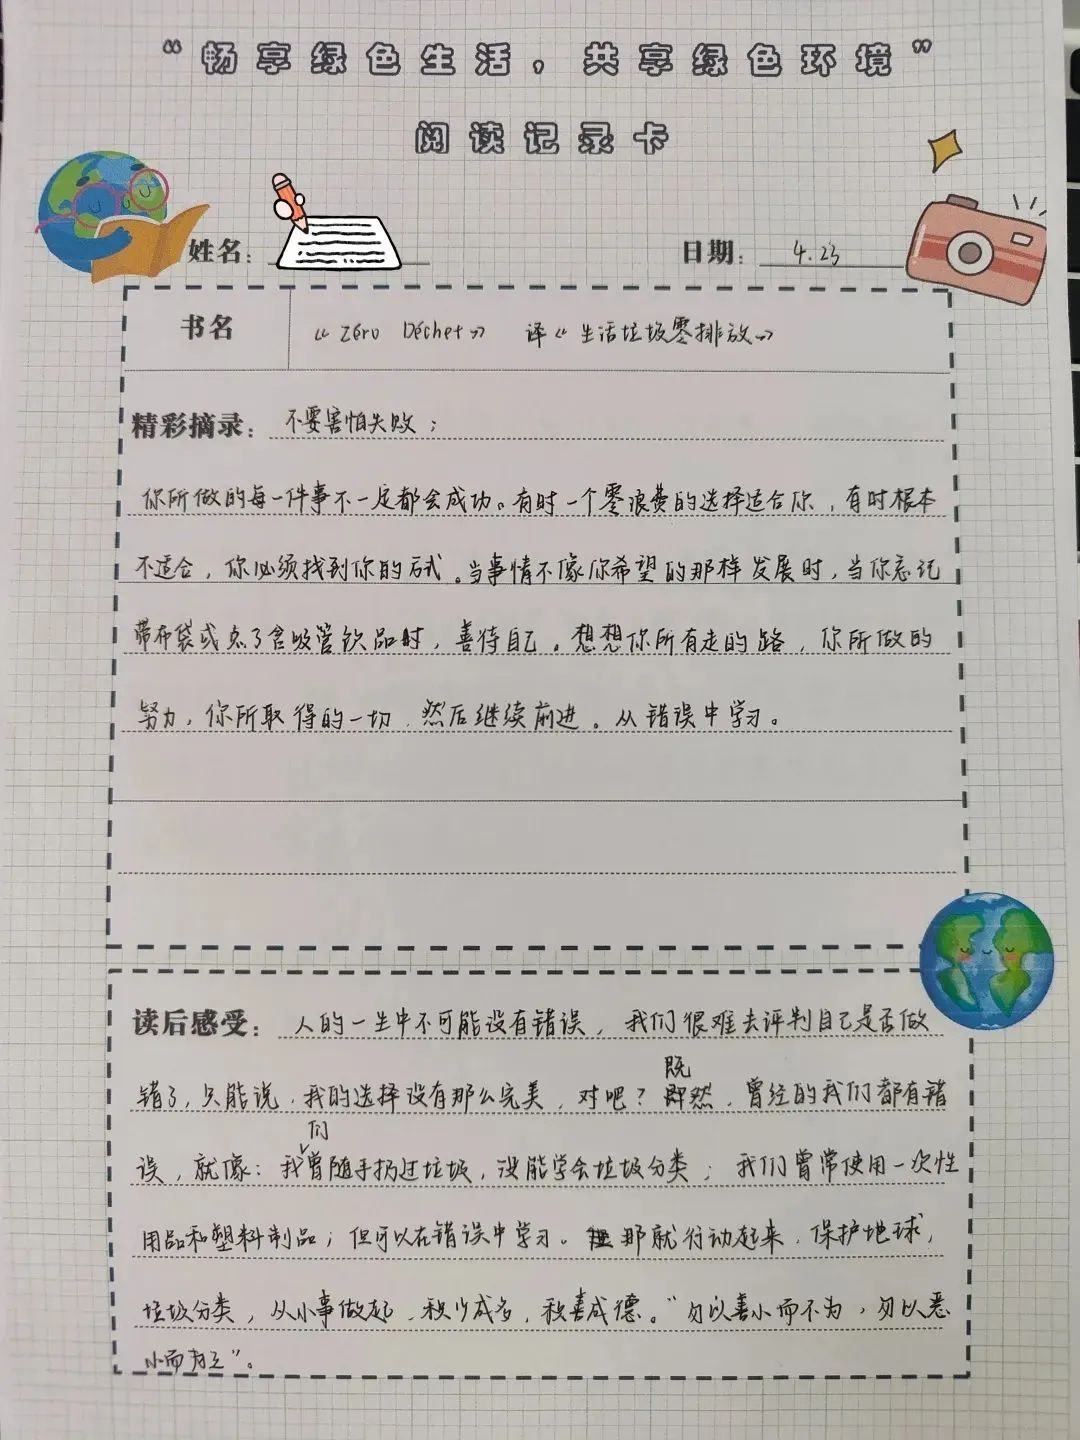 “畅享绿色生活，共享绿色环境”
阅读记录卡
姓名： 日期： 4.23
书名 《Zéro Déchet》 译《生活垃圾零排放》
精彩摘录： 不要害怕失败；
你所做的每一件事不一定都会成功。有时一个零浪费的选择适合你，有时根本
不适合，你必须找到你的方式。当事情不像你希望的那样发展时，当你忘记
带布袋或点了含吸管饮品时，善待自己。想想你所有走的路，你所做的
努力，你所取得的一切，然后继续前进。从错误中学习。
读后感受： 人的一生中不可能没有错误，我们很难去评判自己是否做
错了，只能说，我的选择没有那么完美，对吧？既然，曾经的我们都有错
误，就像：我们曾随手扔过垃圾，没能学会垃圾分类；我们曾常使用一次性
用品和塑料制品；但可以在错误中学习。那就行动起来，保护地球，
垃圾分类，从小事做起，积少成多，积善成德。“勿以善小而不为，勿以恶
小而为之”。